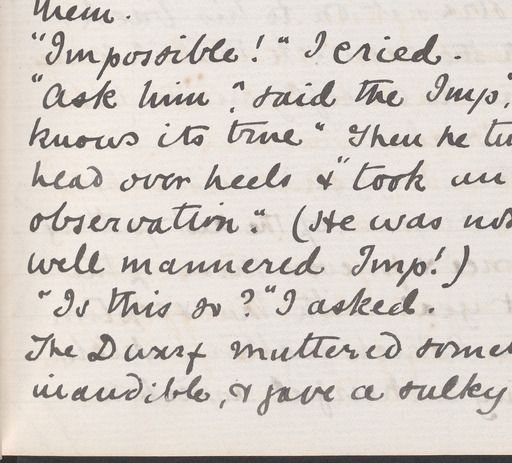 them.
"Impossible!" I cried.
"Ask him", said the Imp,
knows its true" Then he tu
head over heels &"took an
observation." (He was not
well mannered Imp!)
"Is this so?" I asked.
The Dwarf muttered somet
inaudible, & gave a sulky